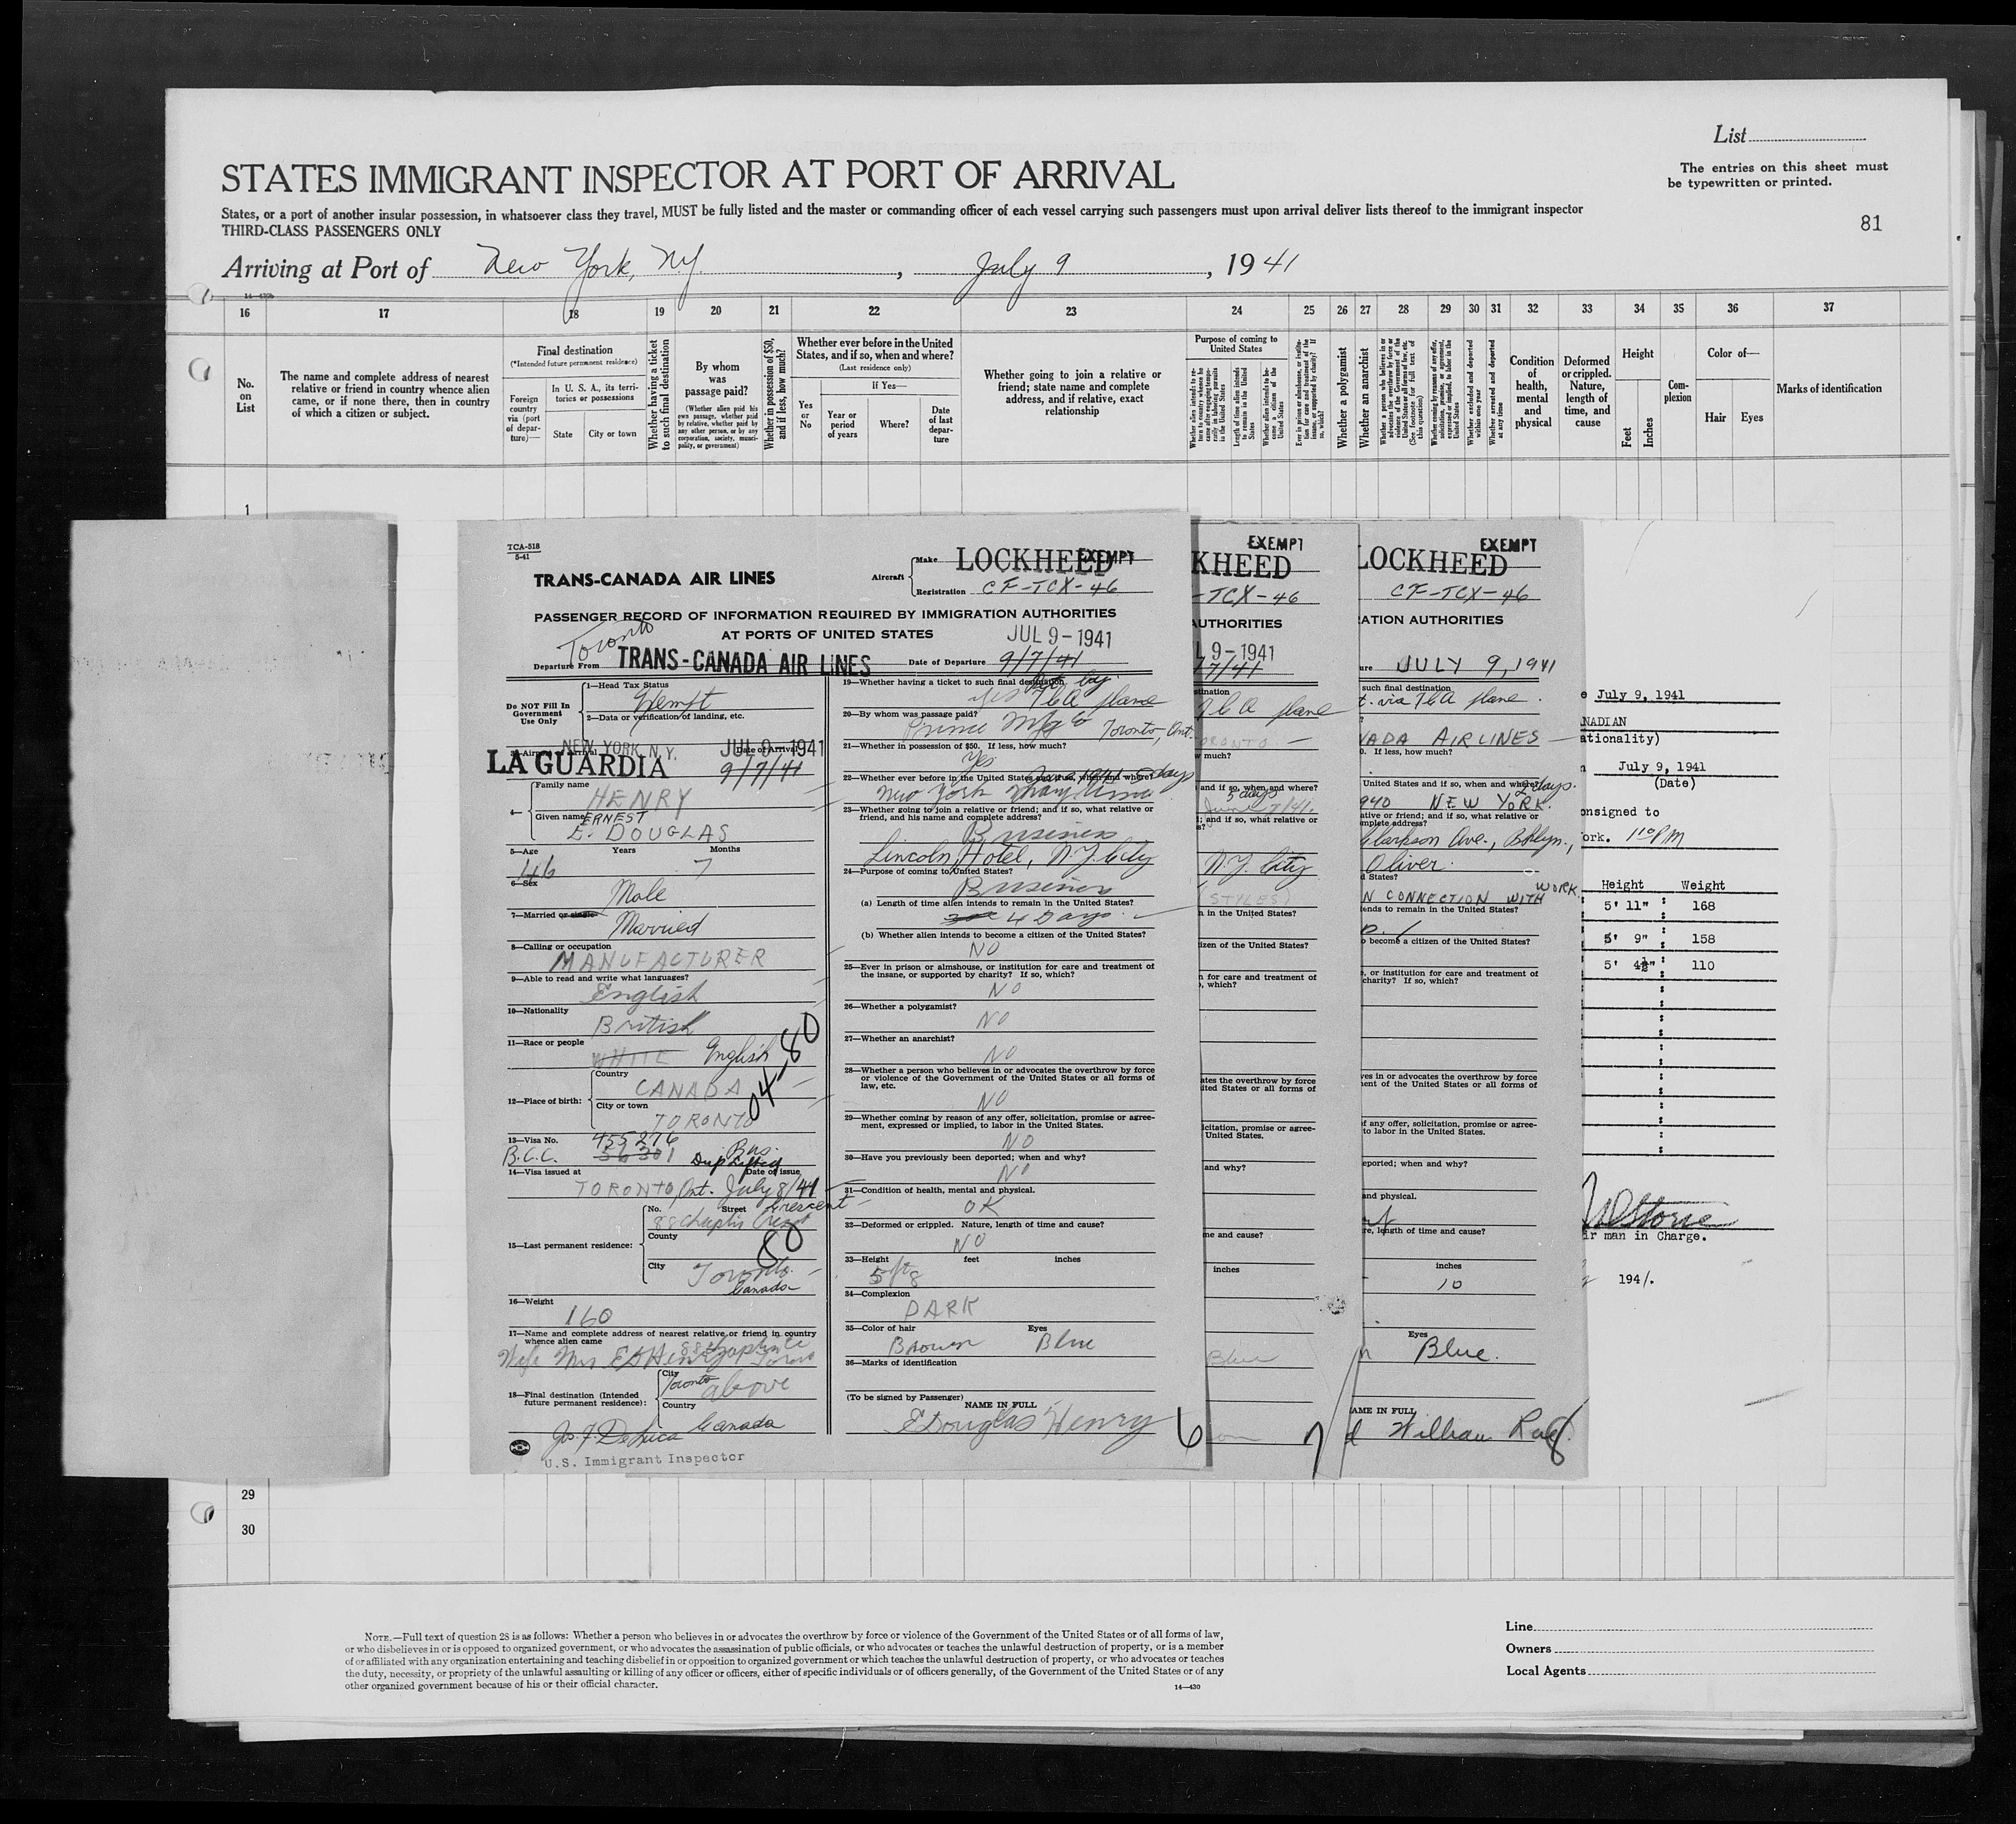 List
The entries on this sheet must
be typewritten or printed.
81
STATES IMMIGRANT INSPECTOR AT PORT OF ARRIVAL
States, or a port of another insular possession, in whatsoever class they travel, MUST be fully listed and the master or commanding officer of each vessel carrying such passengers must upon arrival deliver lists thereof to the immigrant inspector
THIRD-CLASS PASSENGERS ONLY
Arriving at Port of New York, N.Y. , July 9 , 19 41
16 17 18 19 20 21 22 23 24 25 26 27 28 29 30 31 32 33 34 35 36 37
No. on List
The name and complete address of nearest relative or friend in country whence alien came, or if none there, then in country of which a citizen or subject.
Final destination
(*Intended future permanent residence)
Foreign country via (port of departure)—
In U. S. A., its territories or possessions
State
City or town
Whether having a ticket to such final destination
By whom was passage paid?
(Whether alien paid his own passage, whether paid by relative, whether paid by any other person, or by any corporation, society, municipality, or government)
Whether in possession of $50, and if less, how much?
Whether ever before in the United States, and if so, when and where?
(Last residence only)
Yes or No
If Yes—
Year or period of years
Where?
Date of last departure
Whether going to join a relative or friend; state name and complete address, and if relative, exact relationship
Purpose of coming to United States
Whether a polygamist
Whether an anarchist
Condition of health, mental and physical
Deformed or crippled. Nature, length of time, and cause
Height
Feet
Inches
Complexion
Color of—
Hair
Eyes
Marks of identification
1
TCA-518
5-41
TRANS-CANADA AIR LINES
Aircraft
Make LOCKHEED
EXEMPT
Registration CF-TCX-46
PASSENGER RECORD OF INFORMATION REQUIRED BY IMMIGRATION AUTHORITIES
AT PORTS OF UNITED STATES
JUL 9-1941
Toronto
Departure From TRANS-CANADA AIR LINES
Date of Departure 9/7/41
Do NOT Fill In Government Use Only
1—Head Tax Status
Exempt
2—Data or verification of landing, etc.
NEW YORK, N.Y.
JUL 9-1941
Date of Arrival
LA GUARDIA
9/7/41
4— Family name
HENRY
Given name ERNEST
E. DOUGLAS
5—Age Years Months
46 7
6—Sex
Male
7—Married or single
Married
8—Calling or occupation
MANUFACTURER
9—Able to read and write what languages?
English
10—Nationality
British
11—Race or people
WHITE English
12—Place of birth:
Country
CANADA
City or town
TORONTO
04-80
13—Visa No. 455276
B.C.C. 56301 Bus.
Dup Lifted
14—Visa issued at Date of issue
TORONTO, Ont. July 8/41
15—Last permanent residence:
No. Street Crescent
88 Chaplin Cresent
County
80
City
Toronto
Canada
16—Weight
160
17—Name and complete address of nearest relative or friend in country whence alien came
Wife Mrs E D Henry 88 Chaplin Cr
Toronto
18—Final destination (Intended future permanent residence):
City
Toronto above
Country
Canada
Jos. J. DeLuca
U.S. Immigrant Inspector
19—Whether having a ticket to such final destination
yes TCA plane
20—By whom was passage paid?
Prince Mfg Co Toronto, Ont.
21—Whether in possession of $50. If less, how much?
Yes
22—Whether ever before in the United States and if so, when and where?
New York
23—Whether going to join a relative or friend; and if so, what relative or friend, and his name and complete address?
Business
Lincoln Hotel, N.Y. City
24—Purpose of coming to United States?
Business
(a) Length of time alien intends to remain in the United States?
4 Days
(b) Whether alien intends to become a citizen of the United States?
NO
25—Ever in prison or almshouse, or institution for care and treatment of the insane, or supported by charity? If so, which?
NO
26—Whether a polygamist?
NO
27—Whether an anarchist?
NO
28—Whether a person who believes in or advocates the overthrow by force or violence of the Government of the United States or all forms of law, etc.
NO
29—Whether coming by reason of any offer, solicitation, promise or agreement, expressed or implied, to labor in the United States.
NO
30—Have you previously been deported; when and why?
NO
31—Condition of health, mental and physical.
OK
32—Deformed or crippled. Nature, length of time and cause?
NO
33—Height feet inches
5 ft 8
34—Complexion
DARK
35—Color of hair Eyes
Brown Blue
36—Marks of identification
(To be signed by Passenger)
NAME IN FULL
E Douglas Henry
6
EXEMPT
KHEED
-TCX-46
AUTHORITIES
L 9-1941
7/41
TCA plane
TORONTO
5 days
June 7/41.
N.Y. City
(STYLES)
inches
Blue
7
EXEMPT
LOCKHEED
CF-TCX-46
ATION AUTHORITIES
JULY 9, 1941
such final destination
t. via TCA plane.
NADA AIRLINES
If less, how much?
United States and if so, when and where?
2 days.
1940 NEW YORK.
Clarkson Ave., Bklyn.,
Oliver.
N CONNECTION WITH WORK
inches
10
Eyes
Blue.
NAME IN FULL
d William
8
e July 9, 1941
NADIAN
ationality)
July 9, 1941
(Date)
onsigned to
ork. 1 10 PM
Height Weight
5' 11" 168
5' 9" 158
5' 4½" 110
ir man in Charge.
1941.
29
30
NOTE.—Full text of question 28 is as follows: Whether a person who believes in or advocates the overthrow by force or violence of the Government of the United States or of all forms of law,
or who disbelieves in or is opposed to organized government, or who advocates the assassination of public officials, or who advocates or teaches the unlawful destruction of property, or is a member
of or affiliated with any organization entertaining and teaching disbelief in or opposition to organized government or which teaches the unlawful destruction of property, or who advocates or teaches
the duty, necessity, or propriety of the unlawful assaulting or killing of any officer or officers, either of specific individuals or of officers generally, of the Government of the United States or of any
other organized government because of his or their official character.
14—430
Line
Owners
Local Agents